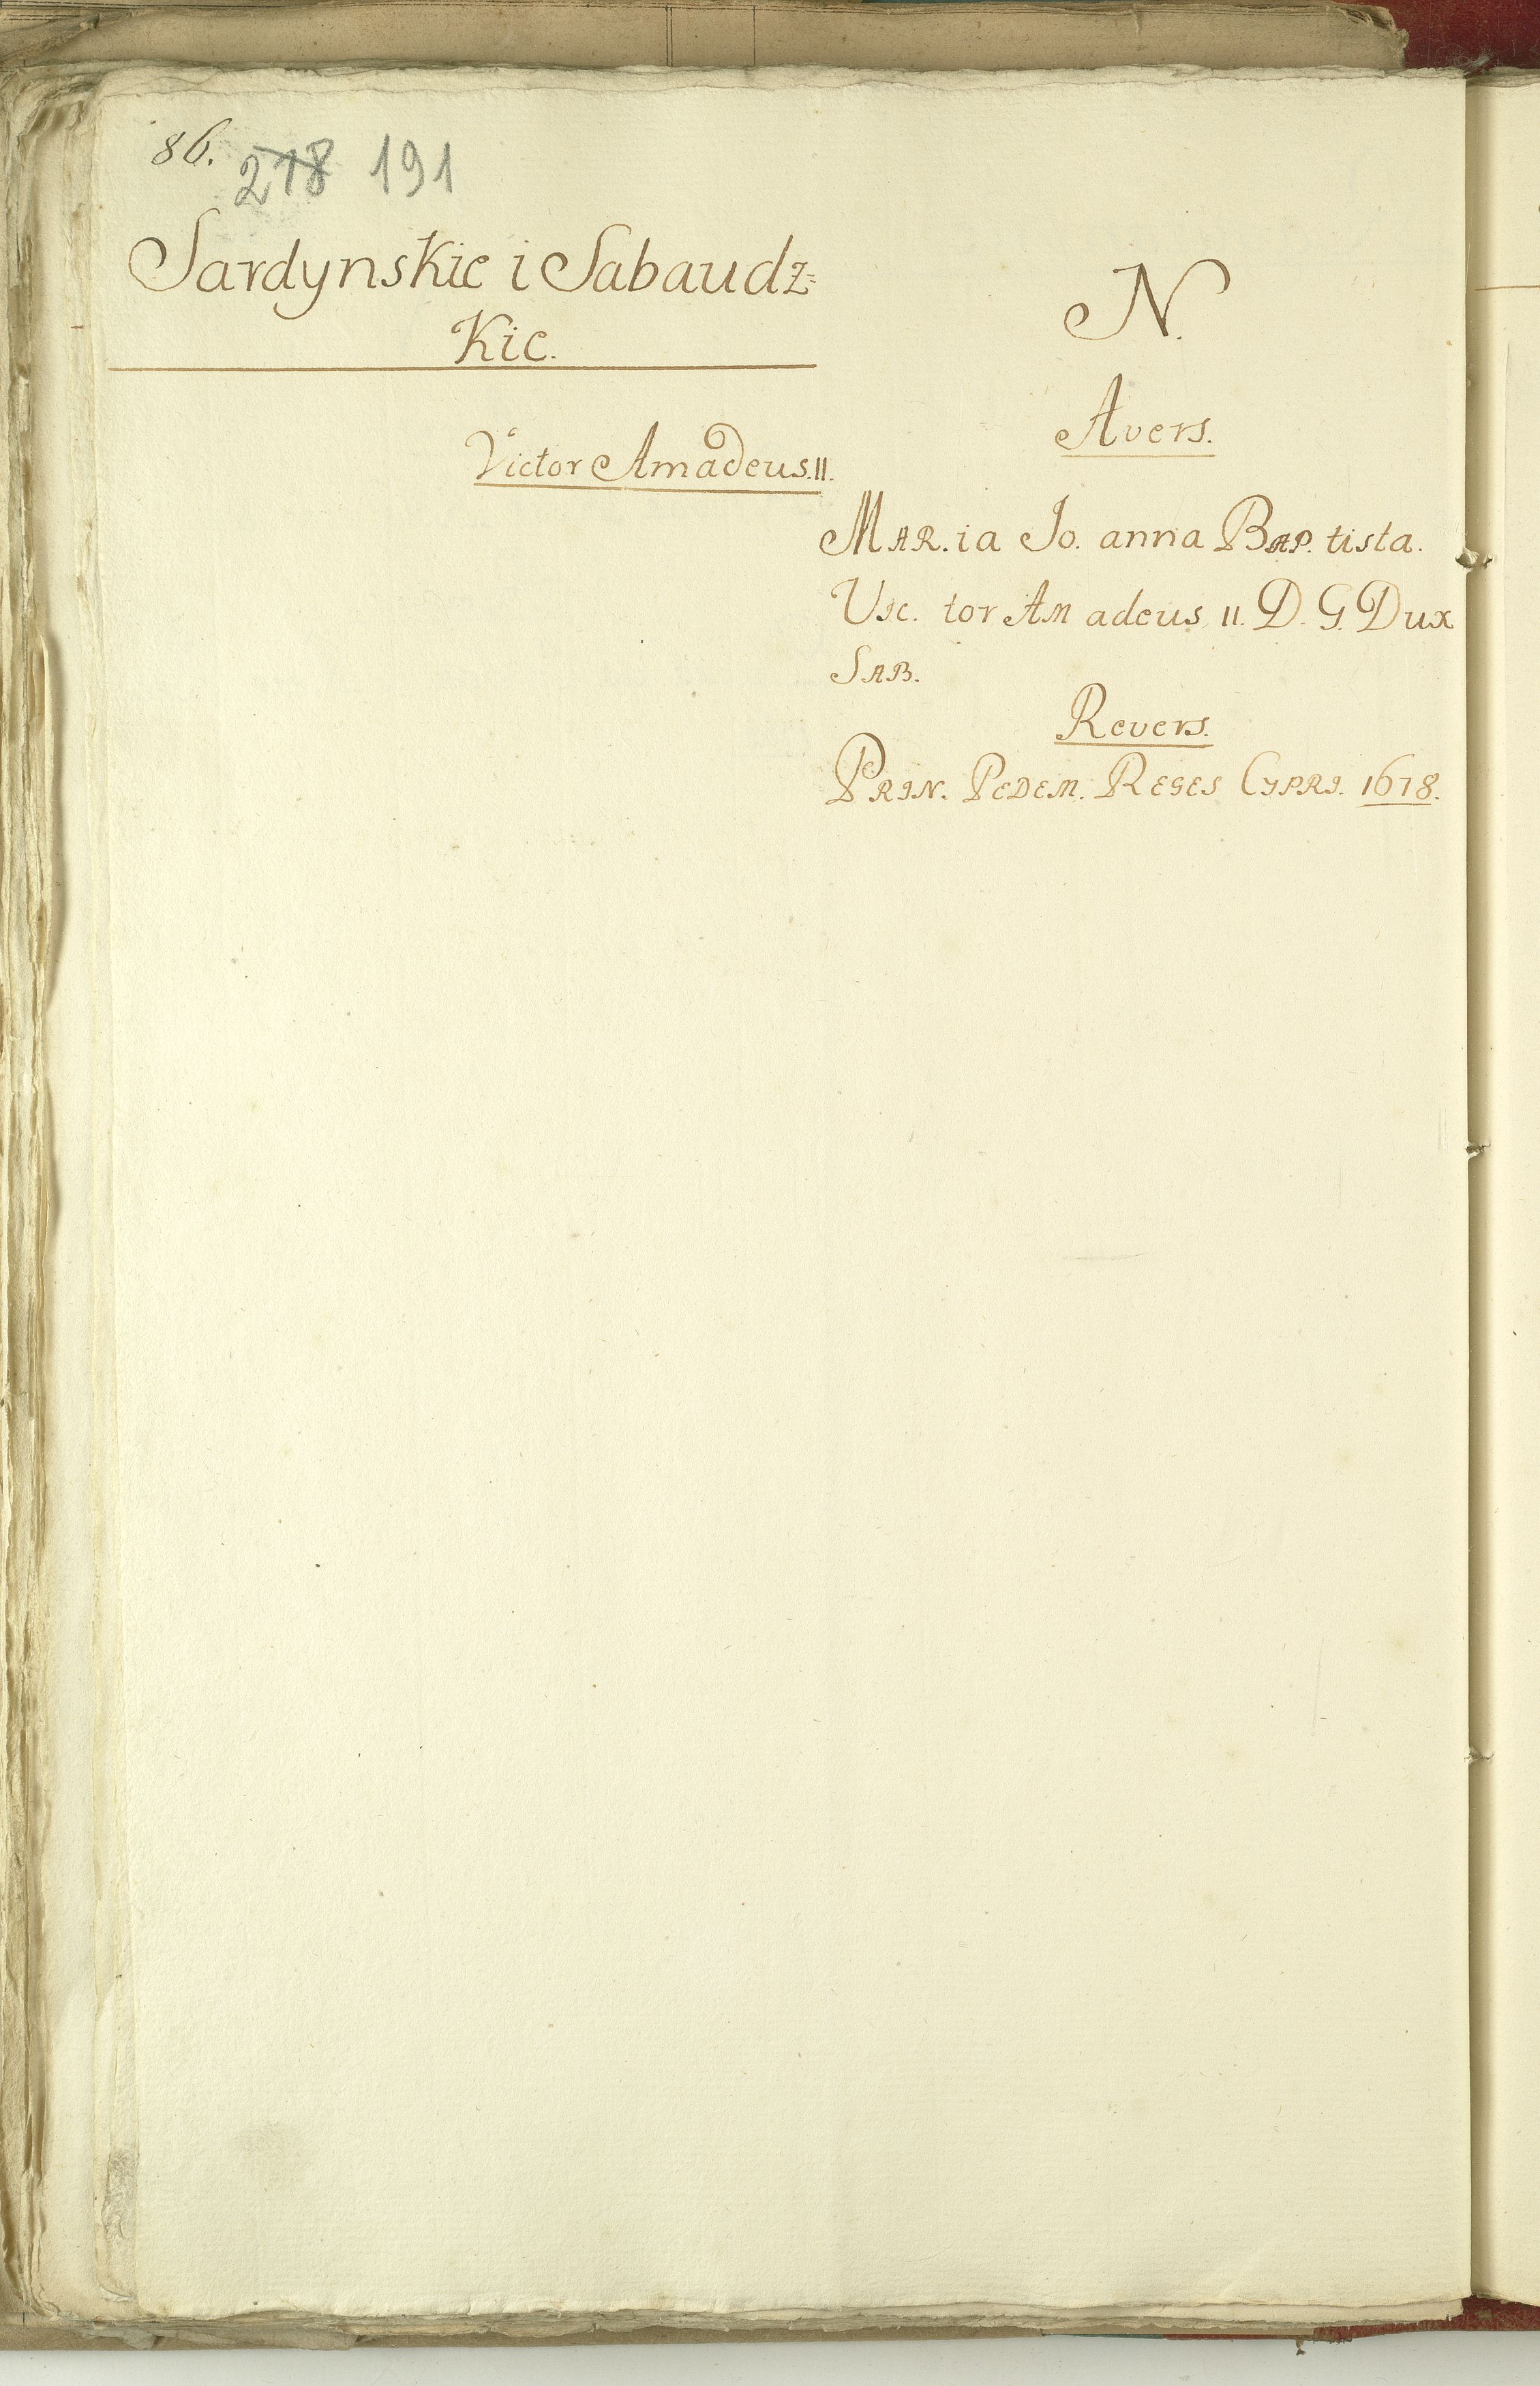 86. 218 191
Sardynskie i Sabaudz=
Kie.
Victor Amadeus. II.
N.
Avers.
MAR. ia Jo. anna BAP. tista.
VIC. tor AM adeus II. D. G. Dux
SAB.
Revers.
PRIN. PEDEM. REGES CYPRI. 1678.